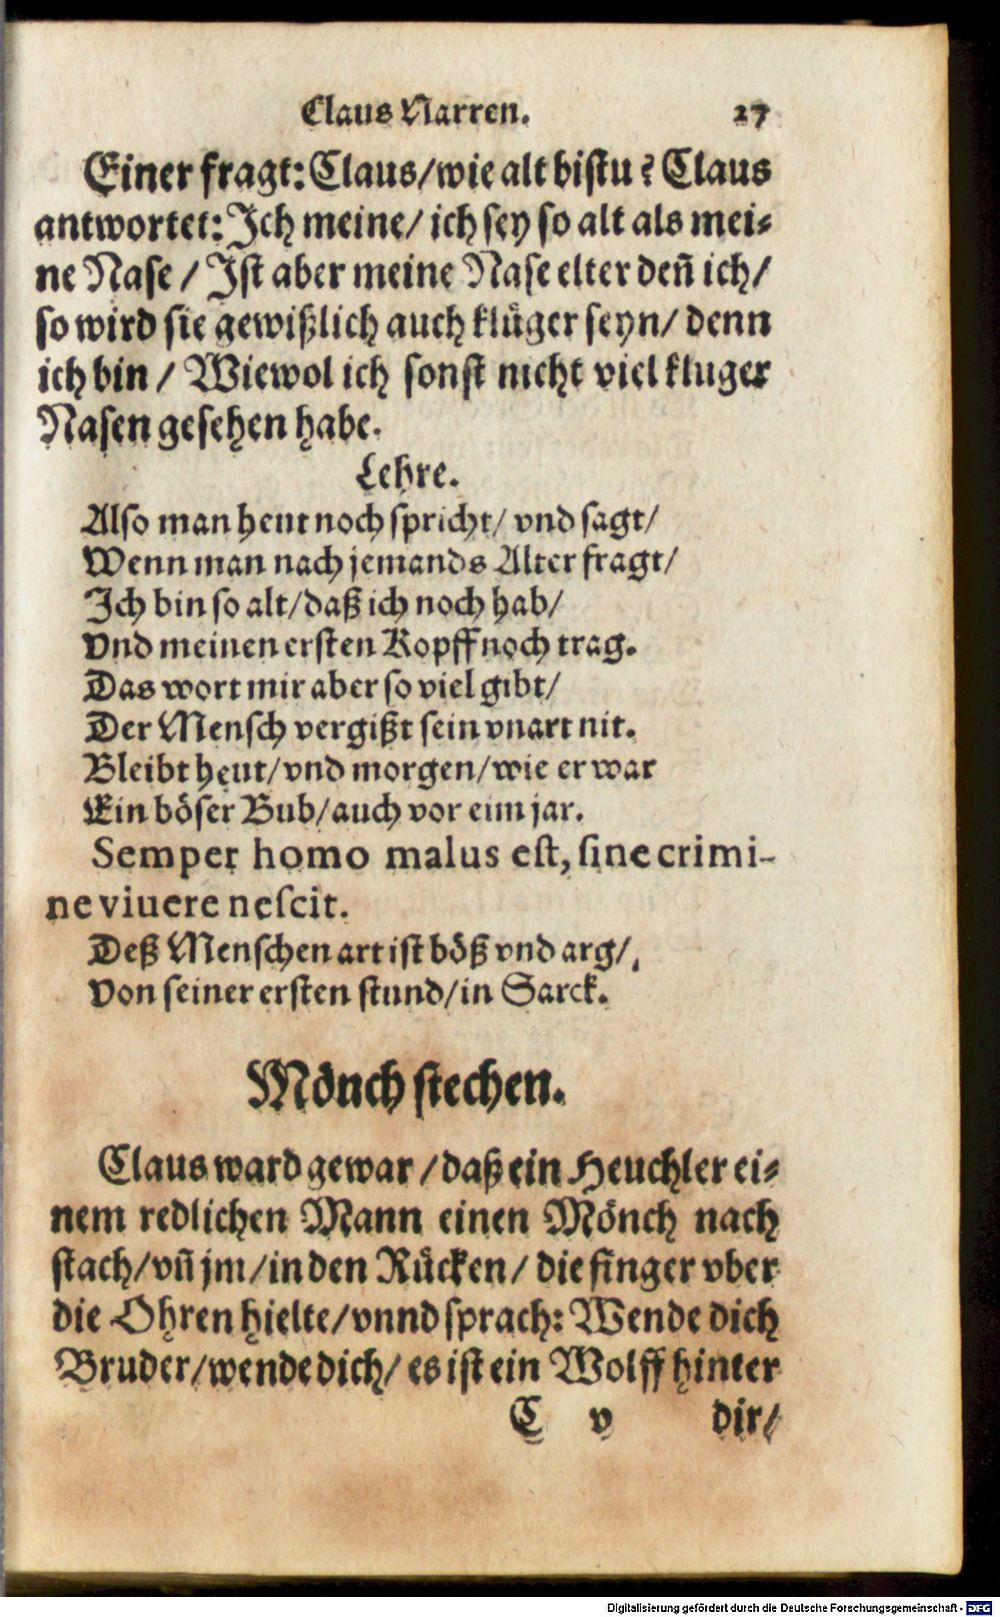 Claus Narren. 27
Einer fragt: Claus/wie alt bistu? Claus
antwortet: Ich meine/ ich sey so alt als mei-
ne Nase / Ist aber meine Nase elter deñ ich/
so wird sie gewißlich auch klüger seyn/ denn
ich bin / Wiewol ich sonst nicht viel kluger
Nasen gesehen habe.
Lehre.
Also man heut noch spricht/ vnd sagt/
Wenn man nach jemands Alter fragt/
Ich bin so alt/daß ich noch hab/
Vnd meinen ersten Kopff noch trag.
Das wort mir aber so viel gibt/
Der Mensch vergißt sein vnart nit.
Bleibt heut/vnd morgen/wie er war
Ein böser Bub/auch vor eim jar.
Semper homo malus est, sine crimi-
ne viuere nescit.
Deß Menschen art ist böß vnd arg/
Von seiner ersten stund/in Sarck.
Mönch stechen.
Claus ward gewar /daß ein Heuchler ei-
nem redlichen Mann einen Mönch nach
stach/vñ jm/in den Rücken/ die finger vber
die Ohren hielte/vnnd sprach: Wende dich
Bruder/wende dich/ es ist ein Wolff hinter
C v dir/
Digitalisierung gefördert durch die Deutsche Forschungsgemeinschaft - DFG